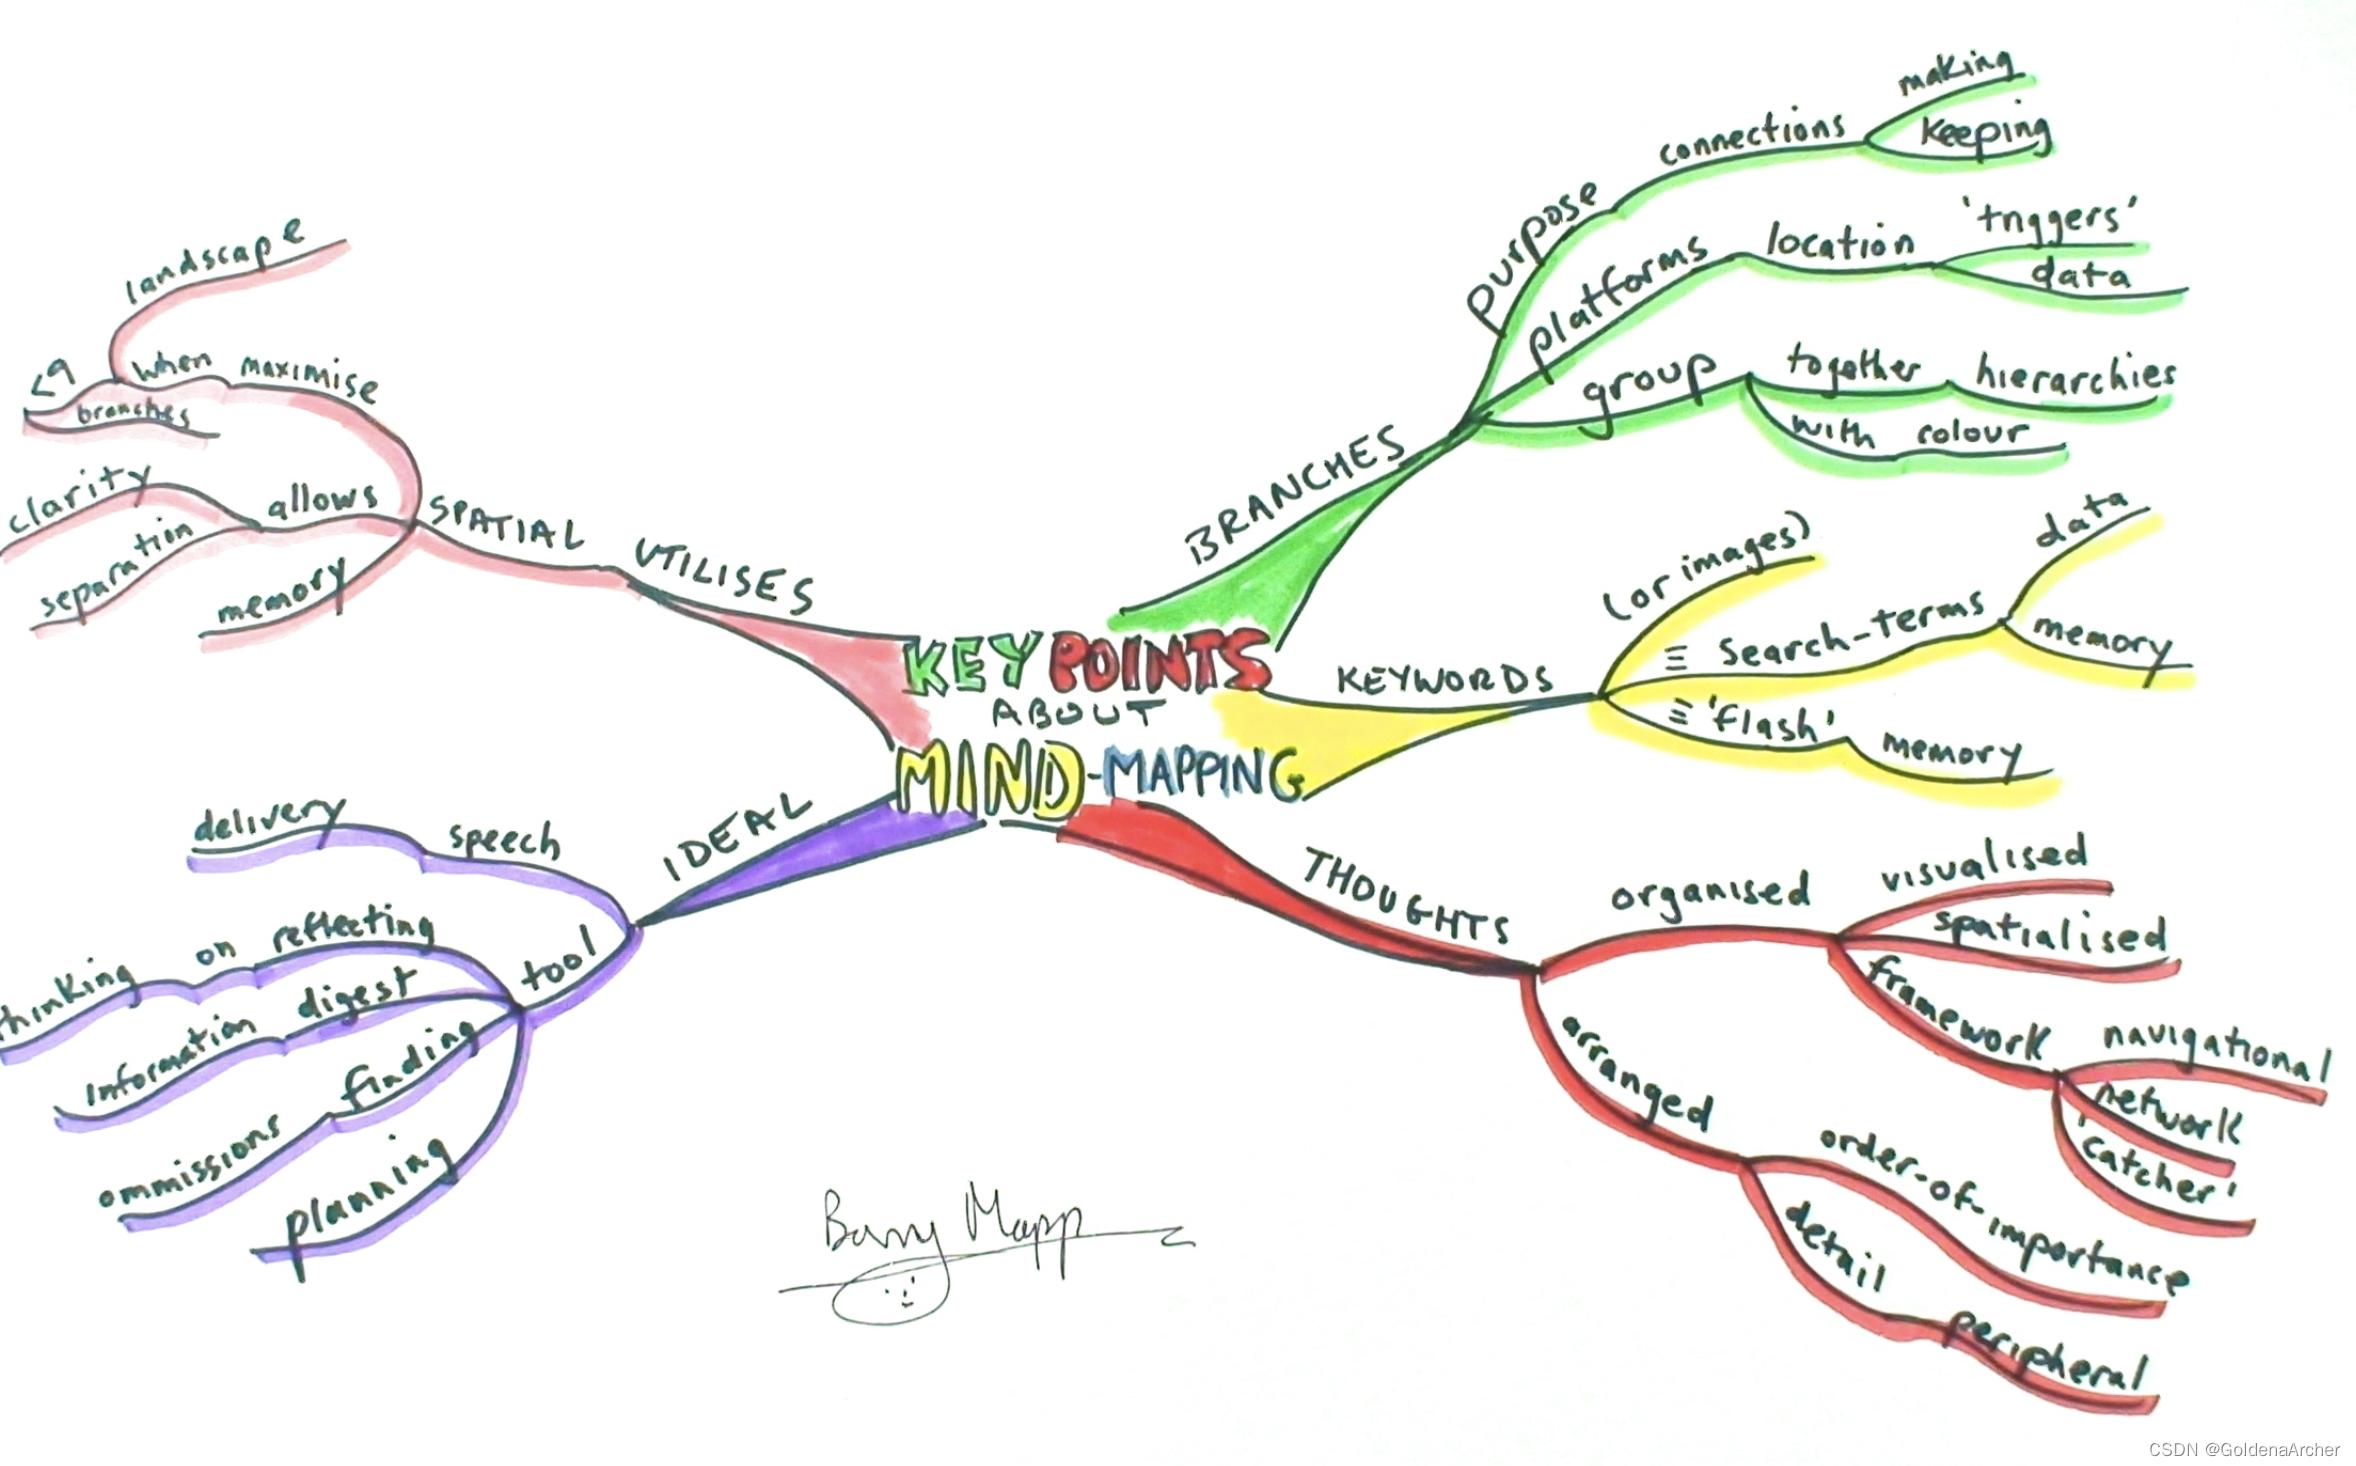 KEY POINTS
ABOUT
MIND-MAPPING
BRANCHES
purpose
connections
making
keeping
platforms
location
'triggers'
data
group
together
hierarchies
with colour
KEYWORDS
(or images)
≡ search-terms
data
memory
≡ 'flash'
memory
THOUGHTS
organised
visualised
spatialised
framework
navigational
network
'catcher'
arranged
order-of-importance
detail
peripheral
IDEAL
speech
delivery
tool
reflecting
on
thinking
digest
information
finding
ommissions
planning
UTILISES
SPATIAL
maximise
when
landscape
<9
branches
allows
clarity
separation
memory
Barry Mapp
CSDN @GoldenaArcher